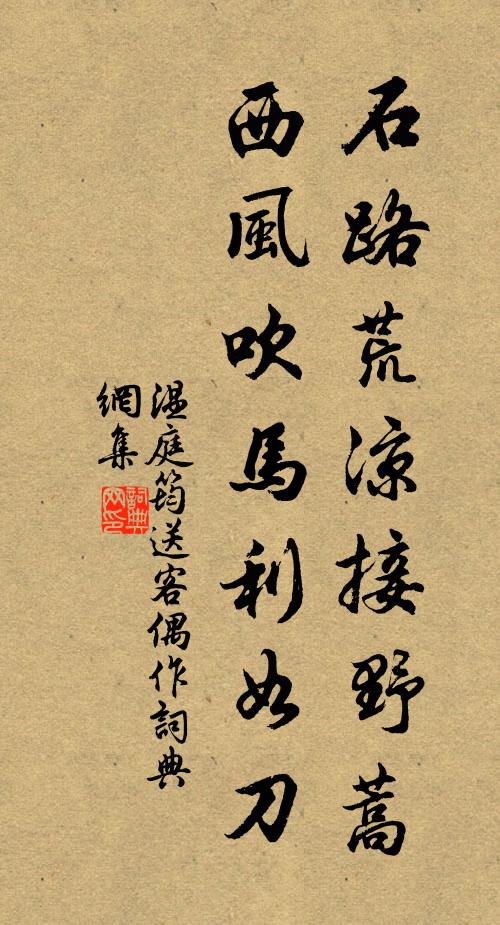 石路荒涼接野蒿
西風吹馬利如刀
溫庭筠送客偶作詞典
網集
詞典網印